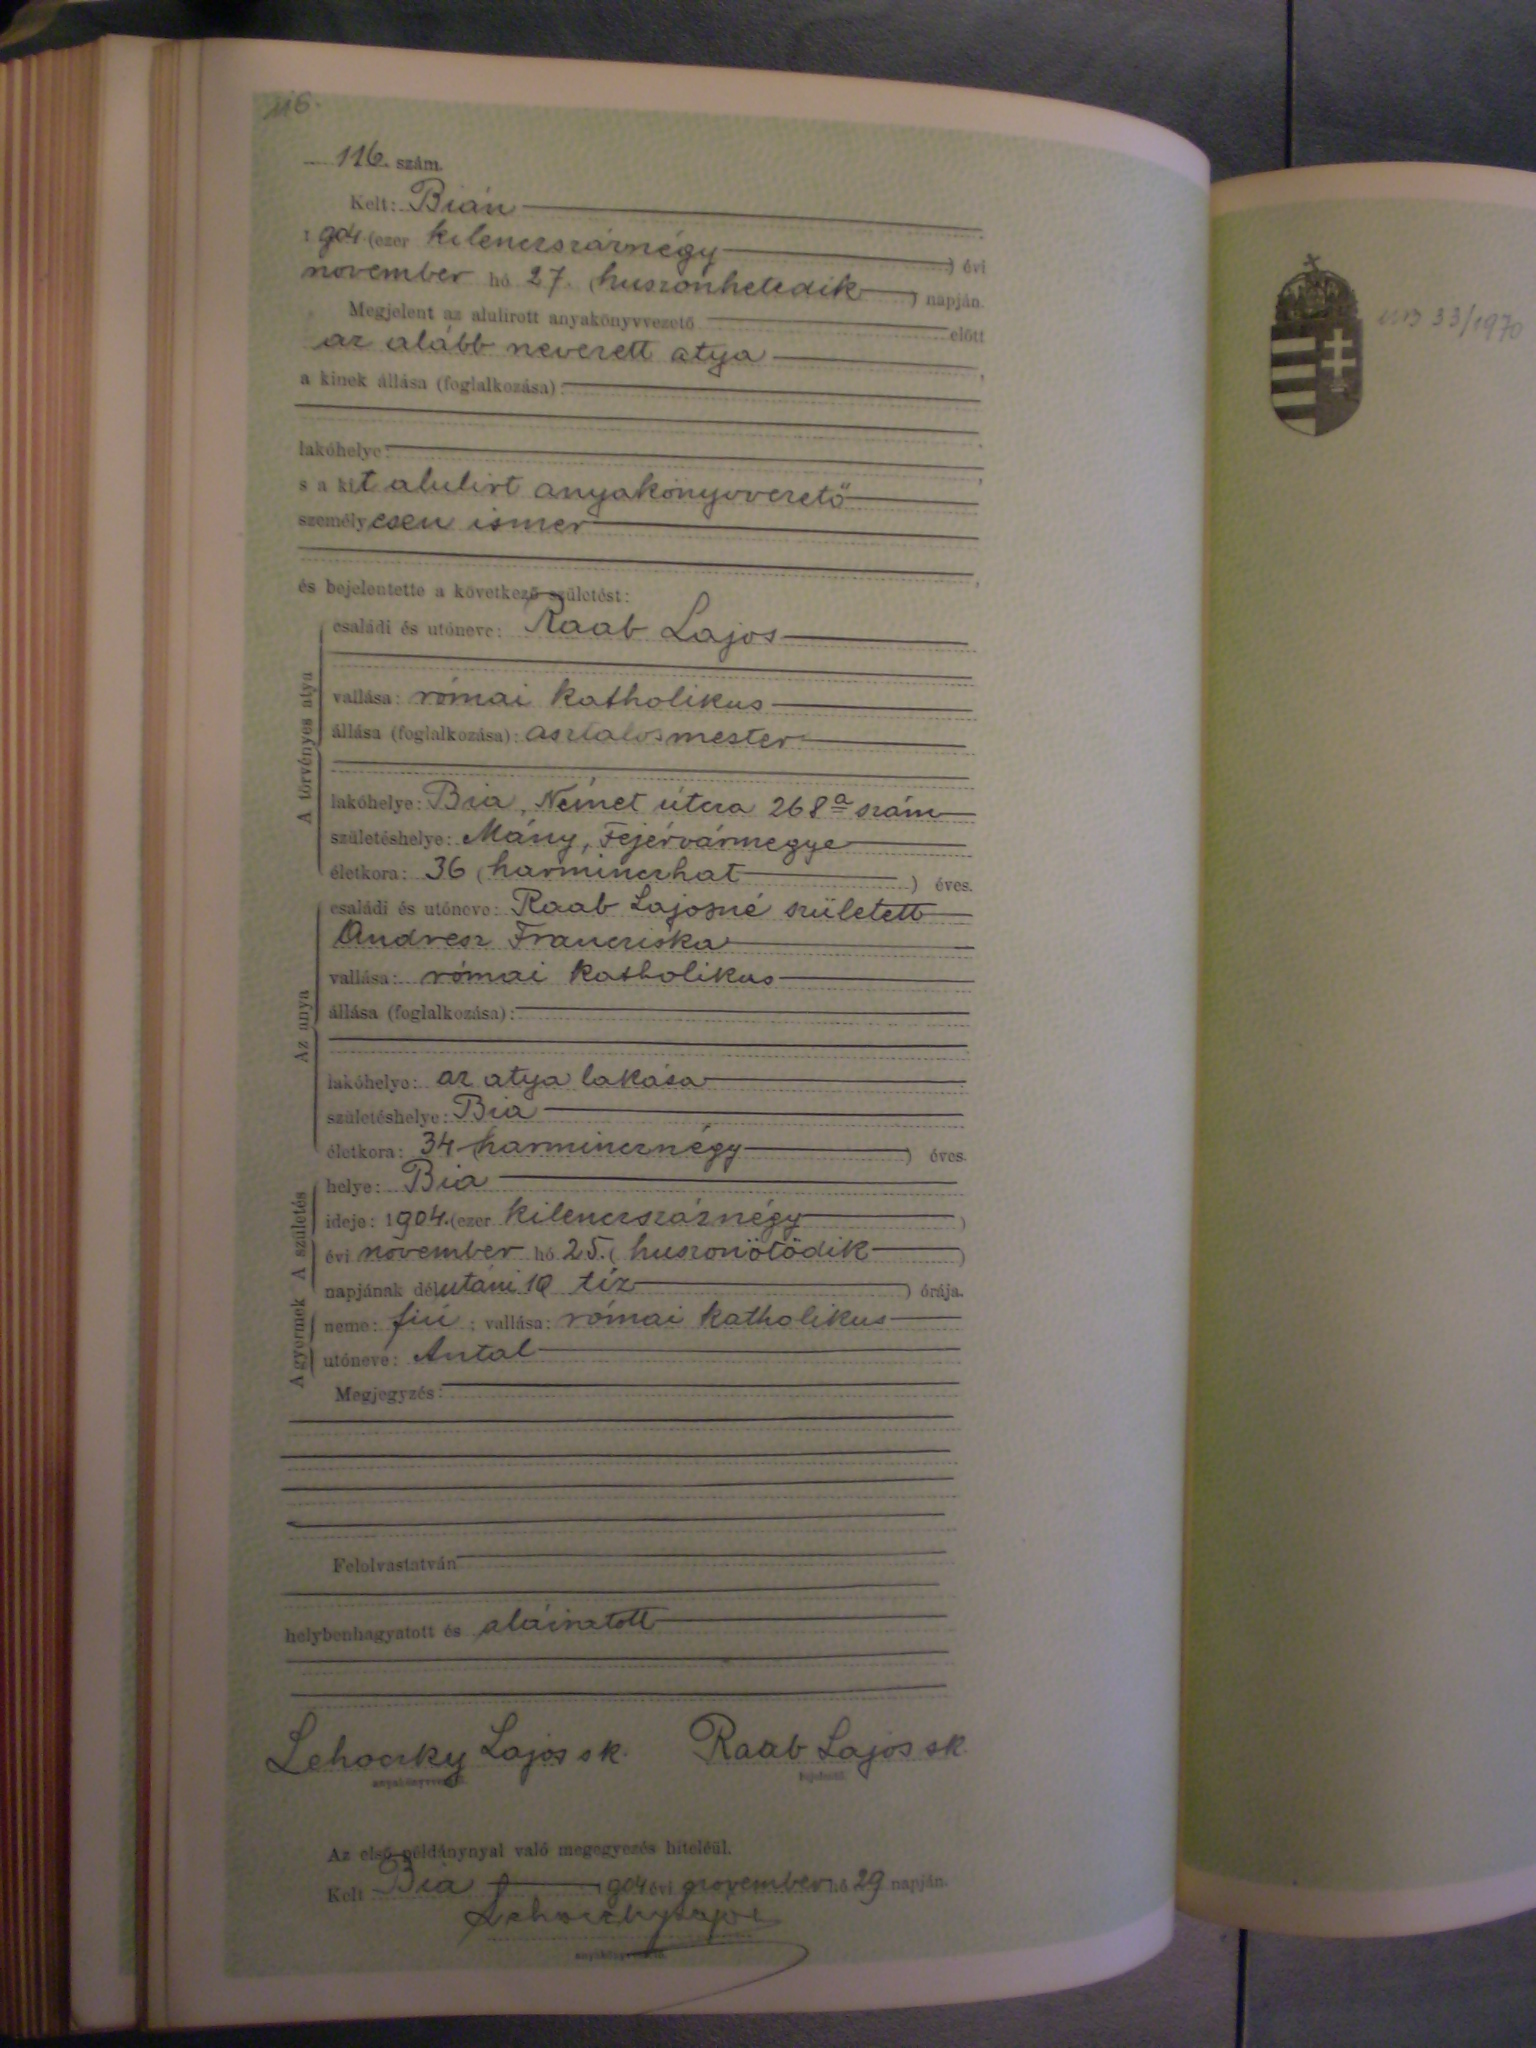 116.
116. szám.
Kelt: Bián
1904 (ezer kilenczszáznégy) évi
november hó 27. (huszonhetedik) napján.
Megjelent az alulirott anyakönyvvezető előtt
az alább nevezett atya,
a kinek állása (foglalkozása):
lakóhelye:
s a kit alulirt anyakönyvvezető
személyesen ismer
és bejelentette a következő születést:
A törvényes atya
családi és utóneve: Raab Lajos
vallása: római katholikus
állása (foglalkozása): asztalosmester
lakóhelye: Bia, Német útcza 268 a szám
születéshelye: Mány, Fejérvármegye
életkora: 36 (harminczhat) éves.
Az anya
családi és utóneve: Raab Lajosné született
Andresz Francziska
vallása: római katholikus
állása (foglalkozása):
lakóhelye: az atya lakása
születéshelye: Bia
életkora: 34 harmincznégy) éves.
A születés
helye: Bia
ideje: 1904. (ezer kilenczszáznégy)
évi november hó 25. (huszonötödik)
napjának délutáni 10 tíz) órája.
A gyermek
neme: fiú; vallása: római katholikus
utóneve: Antal
Megjegyzés:
Felolvastatván
helybenhagyatott és aláiratott
Lehoczky Lajos sk. Raab Lajos sk.
anyakönyvvezető. bejelentő.
Az első példánynyal való megegyezés hiteléül.
Kelt Bia 1904 évi november hó 29 napján.
Lehoczky Lajos
anyakönyvvezető.
33/1970